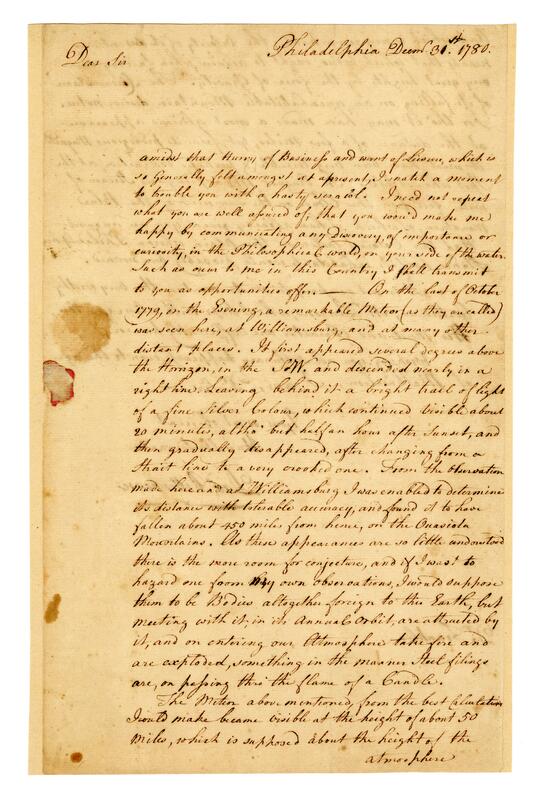 Philadelphia Decem.r 31.st 1780.
Dear Sir
amidst that Hurry of Business and want of Lisure, which is
so Generally felt amongst us at present, I snatch a moment
to trouble you with a hasty scrawl. I need not repeat
what you are well assured of, that you woud make me
happy by communicating any Discovery, of importance or
curiosity, in the Philosophical world, on your side of the water.
Such as occur to me in this Country I shall transmit
to you as opportunities offer. — On the last of October
1779, in the Evening, a remarkable Meteor (as they are called)
was seen here, at Williamsburg, and at many other
distant places. It first appeared several degrees above
the Horizon, in the SoW. and descended nearly in a
right line. Leaving behind it a bright trail of light
of a fine Silver Colour, which continued visible about
20 minutes, altho' but half an hour after Sunset, and
then gradually disappeared, after changing from a
strait line to a very crooked one. From the observations
made here and at Williamsburg I was enabled to determine
its distance with tolerable accuracy, and found it to have
fallen about 450 miles from hence, on the Ouasiota
Mountains. As these appearances are so little understood
there is the more room for conjecture, and if I was to
hazard one from my own observations, I would suppose
them to be Bodies altogether foreign to this Earth, but
meeting with it, in its Annual Orbit, are attracted by
it, and on entering our Atmosphere take fire and
are exploded, something in the manner steel filings
are, on passing thro' the flame of a Candle.
The Meteor above mentioned, from the best Calculation
I could make became visible at the height of about 50
Miles, which is supposed about the height of the
atmosphere